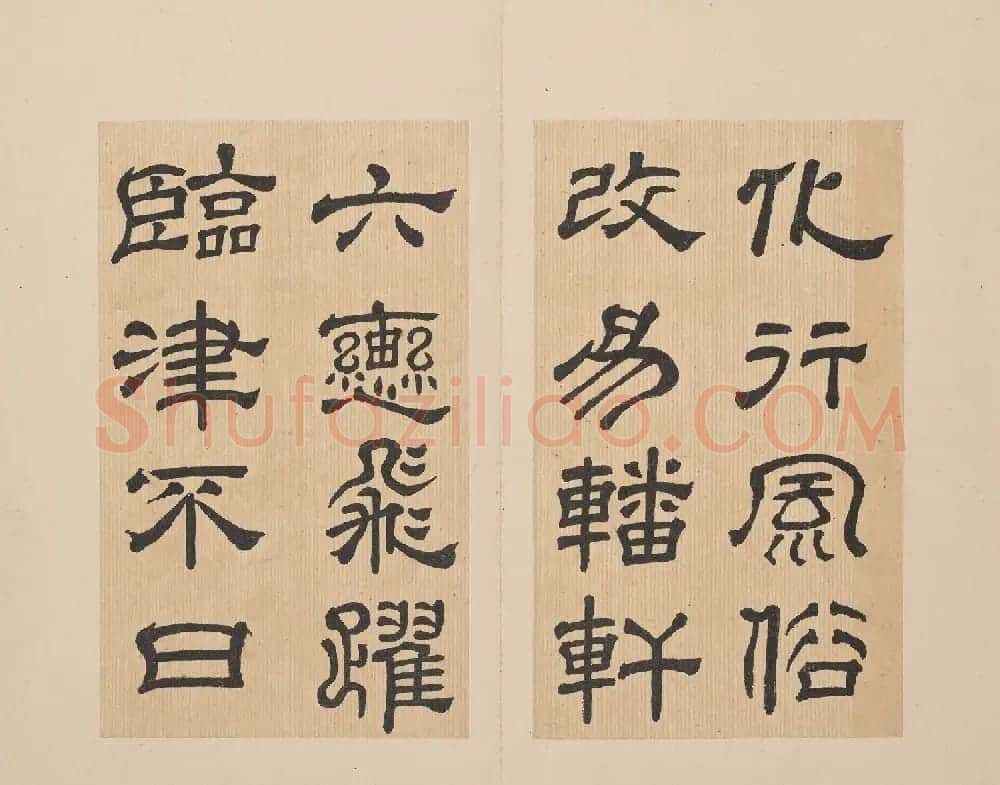 化行風俗
改易轓軒
六轡飛躍
臨津不日
Shufaziliao.COM